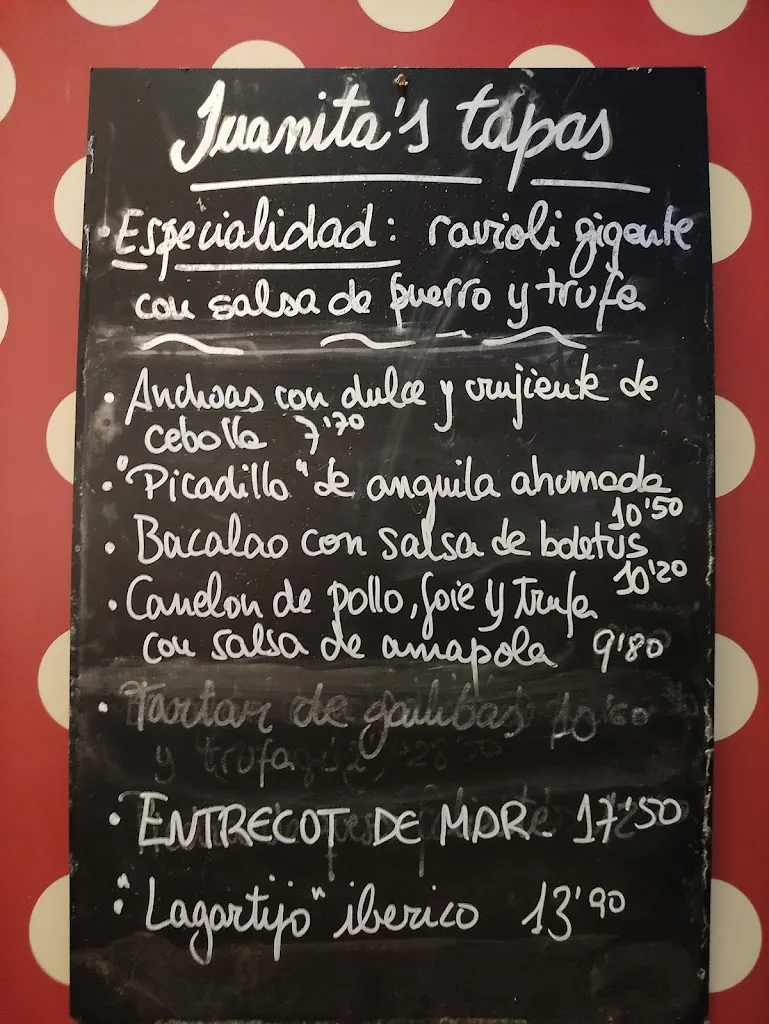 Juanita's tapas
• Especialidad: ravioli gigante
con salsa de puerro y trufa
• Anchoas con dulce y crujiente de
cebolla 7'70
• "Picadillo" de anguila ahumada
10'50
• Bacalao con salsa de boletus
10'20
• Canelon de pollo, foie y trufa
con salsa de amapola 9'80
• Tartar de gambas
y trufa
• ENTRECOT DE MAR - 17'50
• "Lagartijo" iberico 13'90